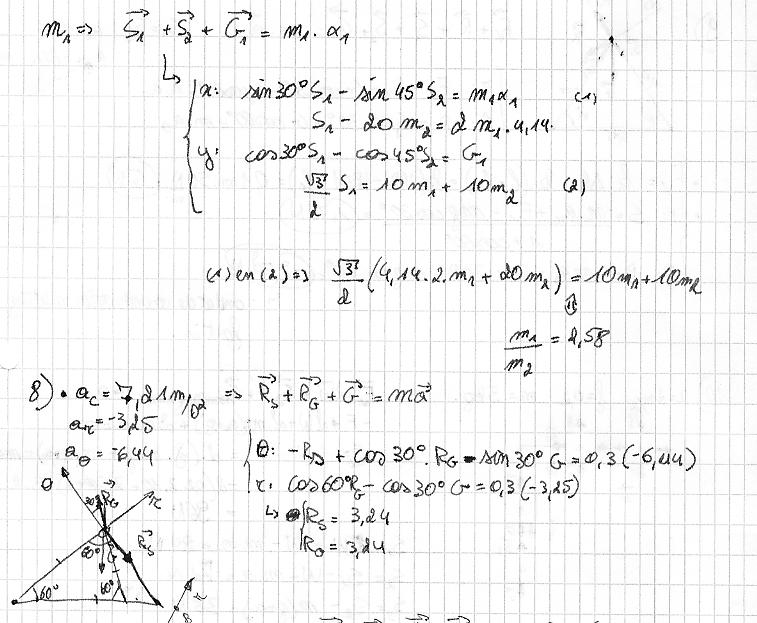 m₁ => S₁ + S₂ + G₁ = m₁ · α₁
x: sin30° S₁ - sin45° S₂ = m₁α₁ (1)
S₁ - 20 m₂ = 2 m₁ · 4,14
y: cos30° S₁ - cos45° S₂ = G₁
√3/2 S₁ = 10 m₁ + 10 m₂ (2)
(1) en (2) => √3/2 (4,14 · 2 · m₁ + 20 m₂) = 10 m₁ + 10 m₂
⇕
m₁/m₂ = 2,58
8) • a_c = 7,21 m/s² => R_s + R_G + G = ma
a_r = -3,25
a_θ = -6,44
θ: -R_s + cos30° · R_G - sin30° G = 0,3 (-6,44)
r: cos60° R_G - cos30° G = 0,3 (-3,25)
R_s = 3,24
R_G = 3,24
θ
30°
R_G
r
R_s
60°
G
60°
60°